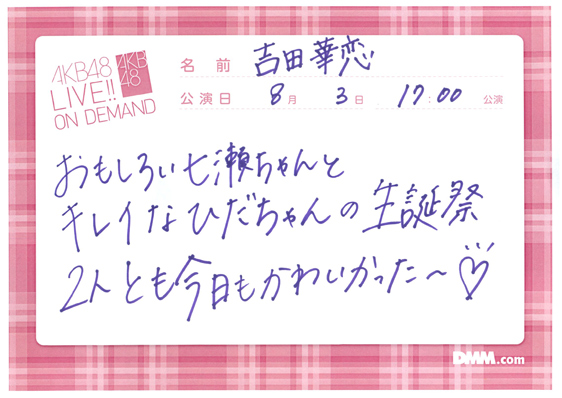 AKB48
LIVE!!
ON DEMAND
AKB
48
名前 吉田華恋
公演日 8月 3日 17:00 公演
おもしろい七瀬ちゃんと
キレイなひだちゃんの生誕祭
2人とも今日もかわいかった〜♡
DMM.com